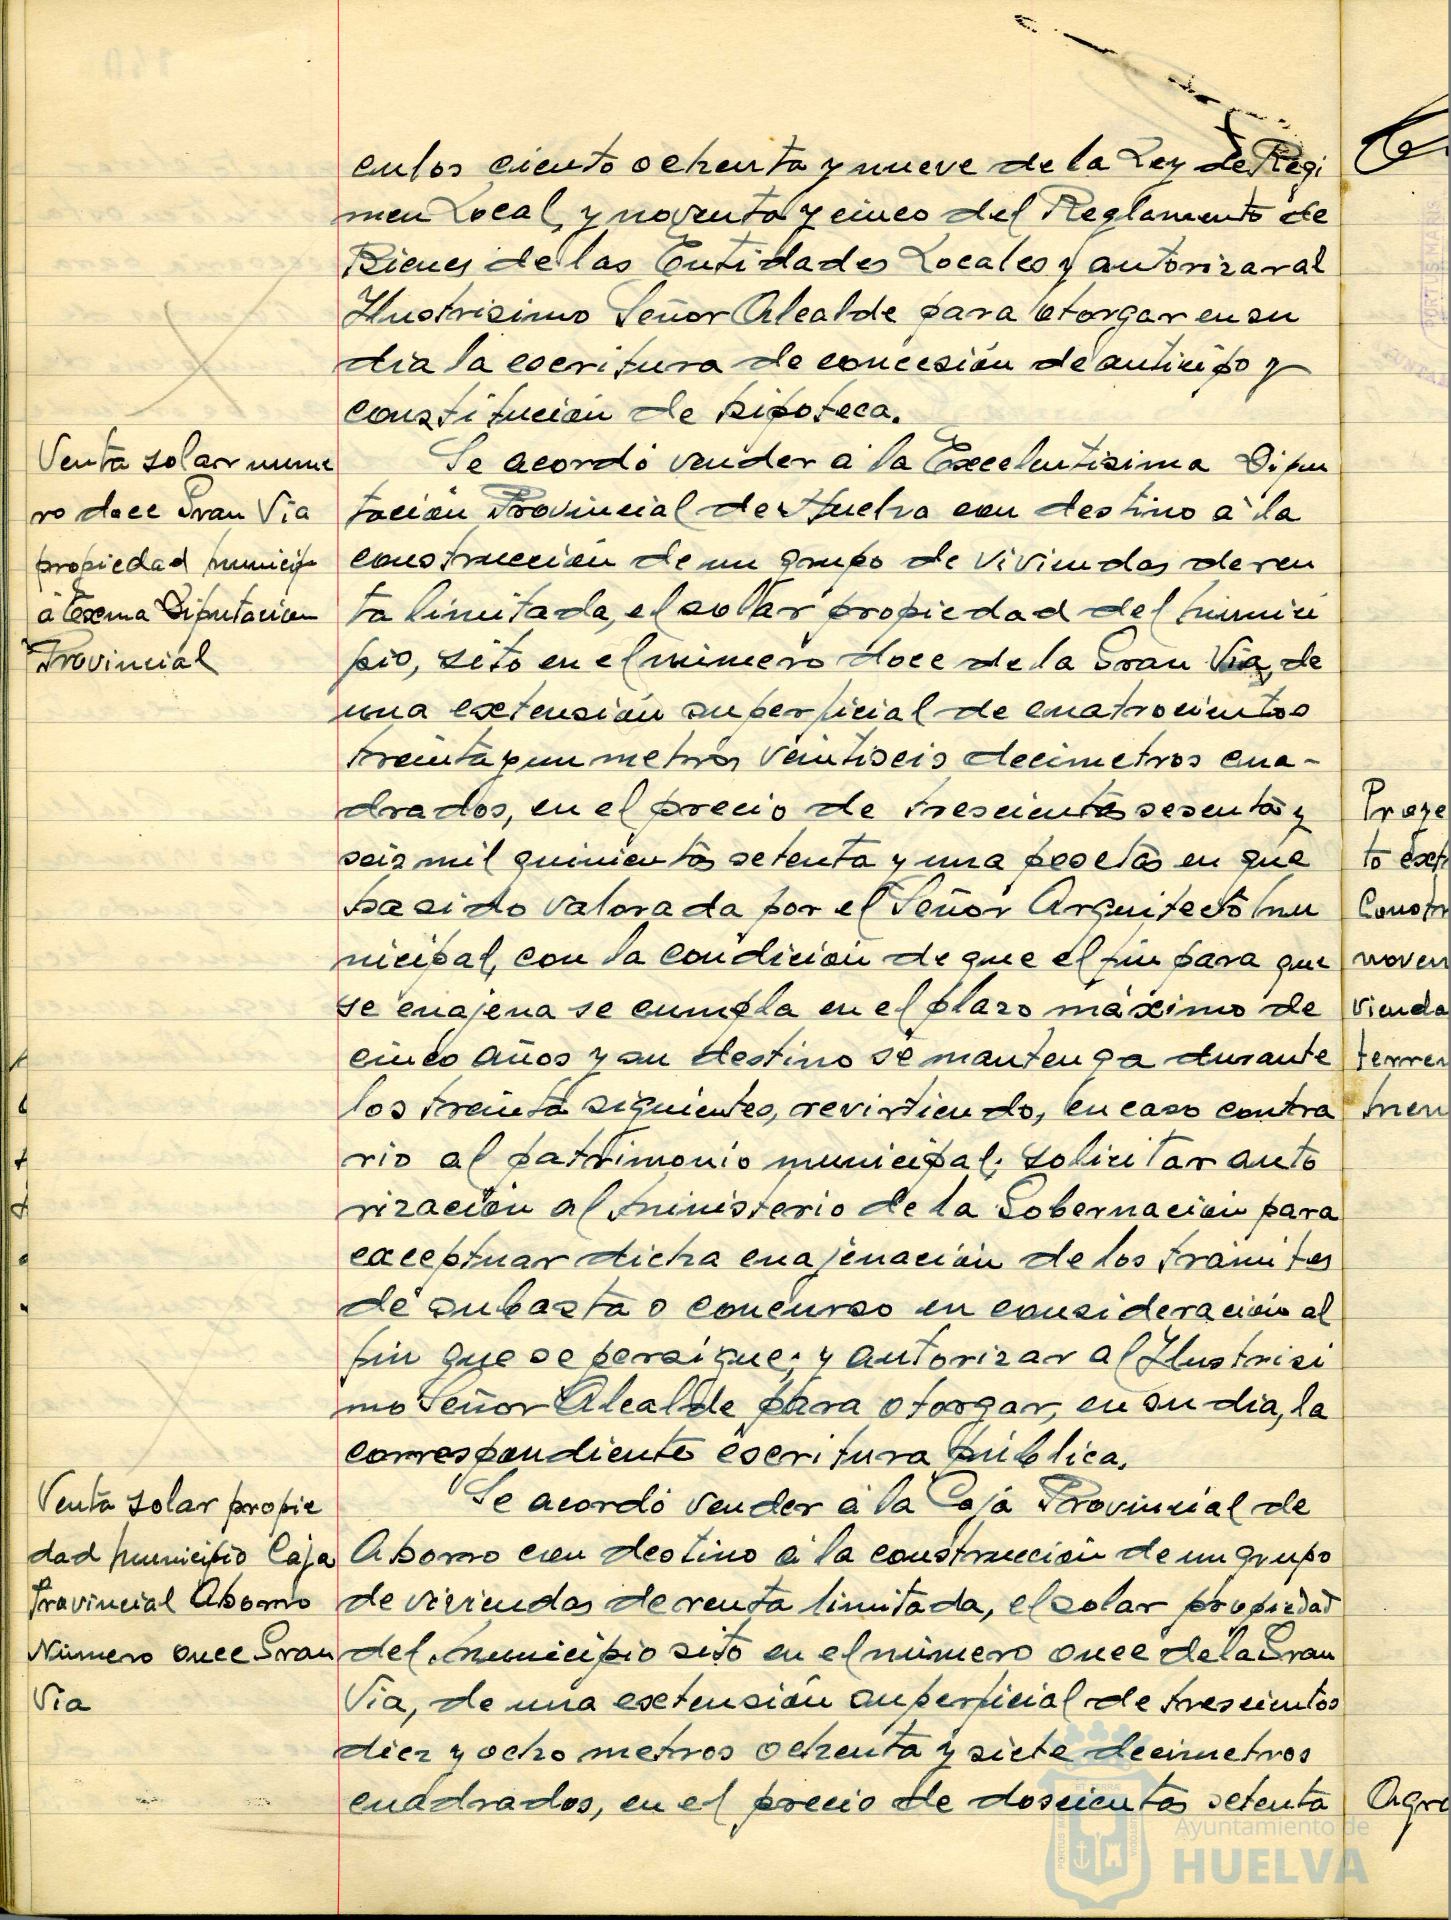 culos ciento ochenta y nueve de la Ley de Regi
men Local, y noventa y cinco del Reglamento de
Bienes de las Entidades Locales y autorizar al
Ilustrisimo Señor Alcalde para otorgar en su
dia la escritura de concesión de anticipo y
constitución de hipoteca.
Venta solar nume
ro doce Gran Via
propiedad municip
á Excma Diputacion
Provincial
Se acordó vender á la Excelentisima Dipu
tación Provincial de Huelva con destino á la
construcción de un grupo de viviendas de ren
ta limitada, el solar propiedad del munici
pio, sito en el número doce de la Gran Via, de
una extensión superficial de cuatrocientos
treinta y un metros veintiseis decimetros cua-
drados, en el precio de trescientas sesenta y
seis mil quinientas setenta y una pesetas en que
ha sido valorada por el Señor Arquitecto mu
nicipal, con la condición de que el fin para que
se enajena se cumpla en el plazo máximo de
cinco años y su destino se mantenga durante
los treinta siguientes, revirtiendo, en caso contra
rio al patrimonio municipal; solicitar auto
rización al Ministerio de la Gobernación para
exceptuar dicha enajenación de los tramites
de subasta o concurso en consideración al
fin que se persigue; y autorizar al Ilustrisi
mo Señor Alcalde para otorgar, en su dia, la
correspondiente escritura pública.
Venta solar propie
dad municipio Caja
Provincial Ahorro
Número once Gran
Via
Se acordó vender á la Caja Provincial de
Ahorro con destino á la construcción de un grupo
de viviendas de renta limitada, el solar propiedad
del municipio sito en el número once de la Gran
Via, de una extensión superficial de trescientos
diez y ocho metros ochenta y siete decimetros
cuadrados, en el precio de doscientas setenta
Proye
to ext
Constr
noven
vienda
terren
men
Agre
Ayuntamiento de
HUELVA